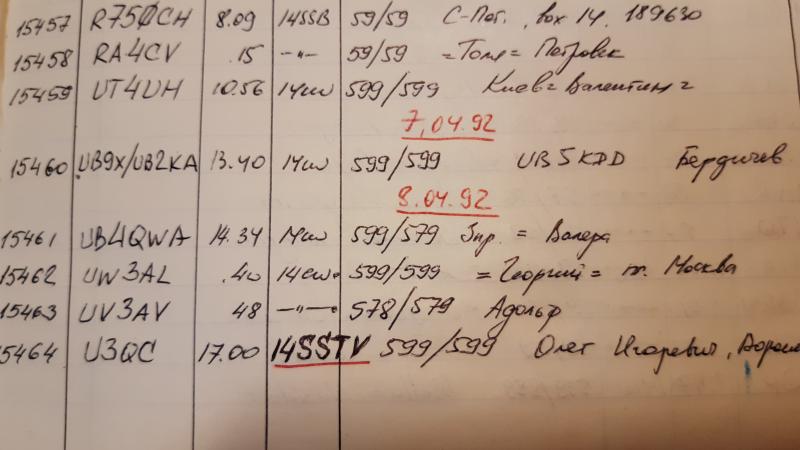 15457 R750CH 8.09 14SSB 59/59 С-Пет. box 14. 189630
15458 RA4CV .15 —"— 59/59 =Толя= Петровск
15459 UT4UH 10.56 14cw 599/599 Киев=Валентин=
7.04.92
15460 UB9X/UB2KA 13.40 14cw 599/599 UB5KDD Бердичев
8.04.92
15461 UB4QWA 14.34 14cw 599/579 Зпр. = Валера
15462 UW3AL .40 14cw. 599/599 =Георгий= г. Москва
15463 UV3AV 48 —"— 578/579 Адольф
15464 U3QC 17.00 14SSTV 599/599 Олег Игоревич,